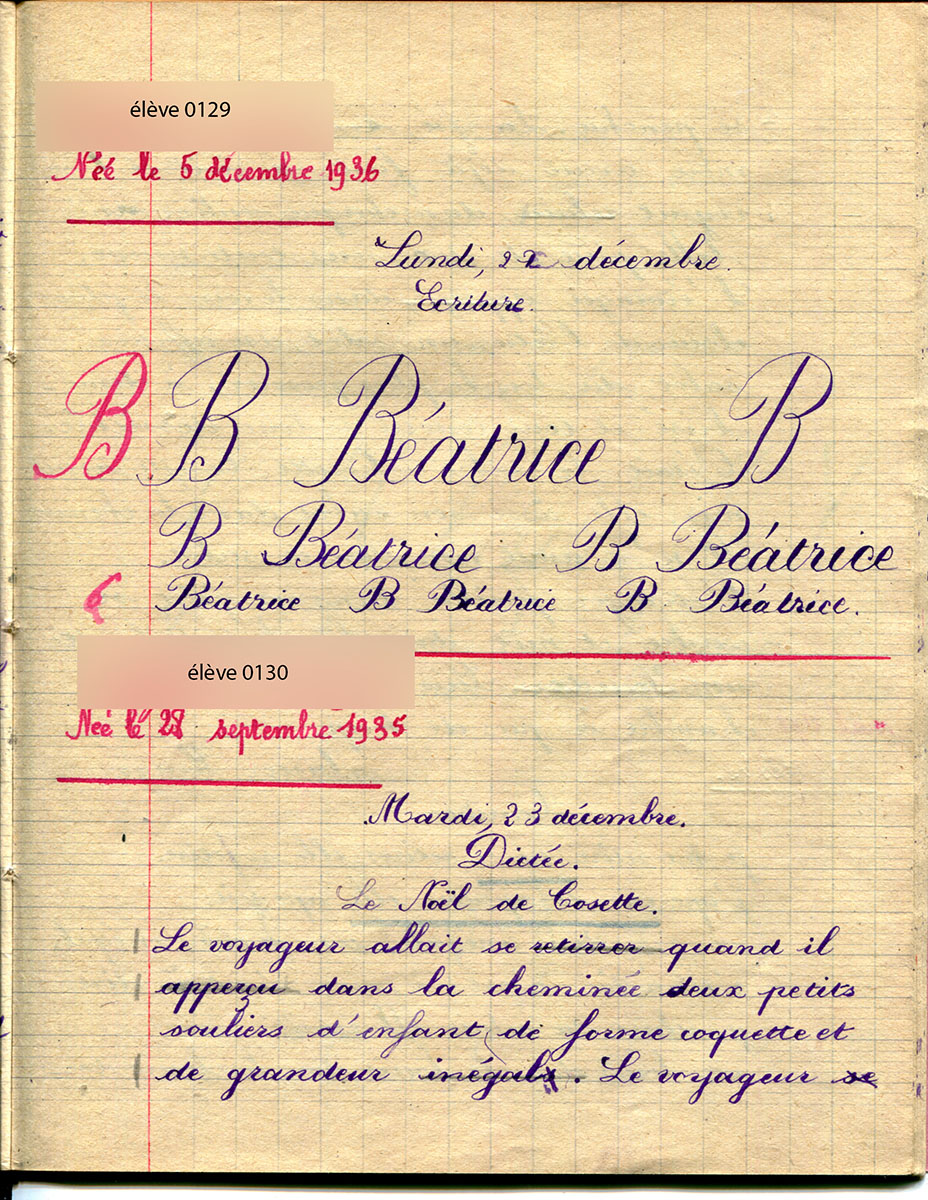 élève 0129
Néé le 5 décembre 1936
Lundi, 22 décembre.
Ecriture.
B B Béatrice B
B Béatrice B Béatrice
6 Béatrice B Béatrice B Béatrice.
élève 0130
Neé le 28 septembre 1935
Mardi, 23 décembre.
Dictée.
Le Noël de Cosette.
Le voyageur allait se retirrer quand il
apperçu dans la cheminée deux petits
souliers d'enfant de forme coquette et
de grandeur inégals. Le voyageur se